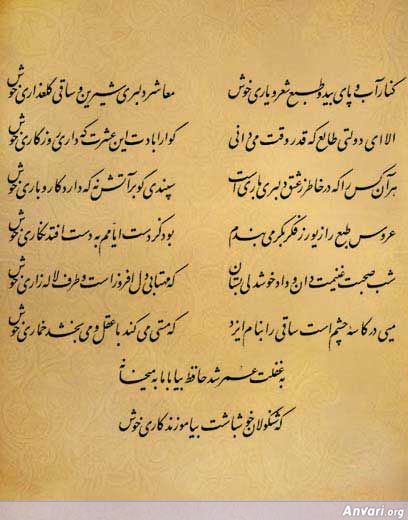 کنار آب و پای بید و طبع شعر و یاری خوش معاشر دلبری شیرین و ساقی گلعذاری خوش
الا ای دولتی طالع که قدر وقت می دانی گوارا بادت این عشرت که داری روزگاری خوش
هر آن کس را که در خاطر ز عشق دلبری باری است سپندی گو بر آتش نه که دارد کار و باری خوش
عروس طبع را زیور ز فکر بکر می بندم بود کز دست ایامم به دست افتد نگاری خوش
شب صحبت غنیمت دان و داد خوشدلی بستان که مهتابی دل افروز است و طرف لاله زاری خوش
میی در کاسهٔ چشم است ساقی را بنام ایزد که مستی می کند با عقل و می بخشد خماری خوش
به غفلت عمر شد حافظ بیا با ما به میخانه
که شنگولان خوش باشت بیاموزند کاری خوش
Anvari.org